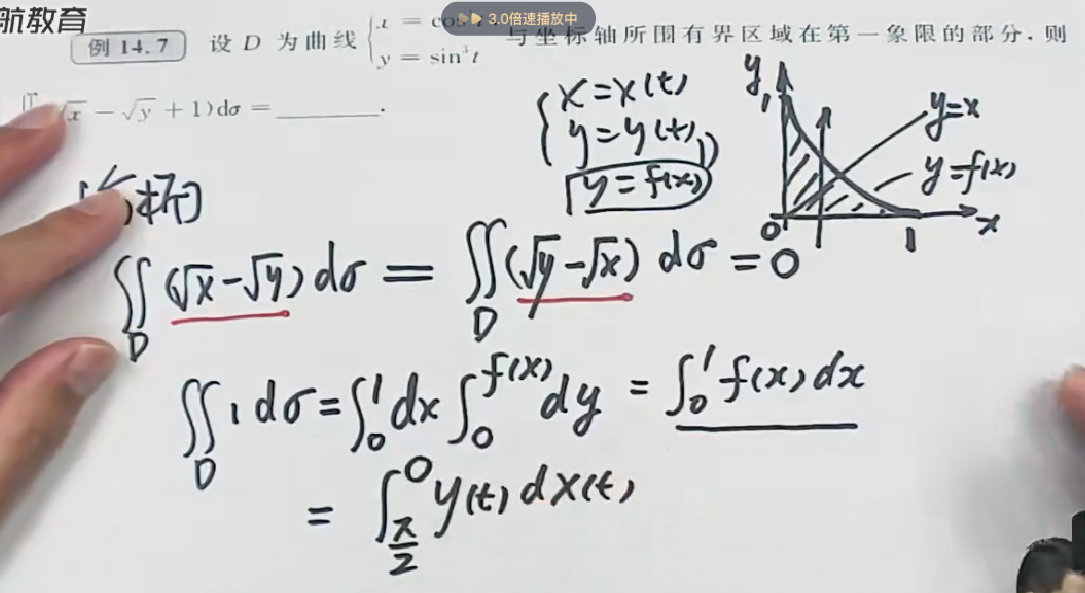 航教育
3.0倍速播放中
例 14.7 设 D 为曲线 { x = cos t 与坐标轴所围有界区域在第一象限的部分,则
y = sin³t
√x − √y + 1)dσ = ______.
{ x = x(t)
y = y(t)
y = f(x)
y
1
y=x
y=f(x)
0
1
x
∬_D (√x − √y) dσ = ∬_D (√y − √x) dσ = 0
∬_D 1 dσ = ∫_0^1 dx ∫_0^{f(x)} dy = ∫_0^1 f(x) dx
= ∫_{π/2}^0 y(t) dx(t)